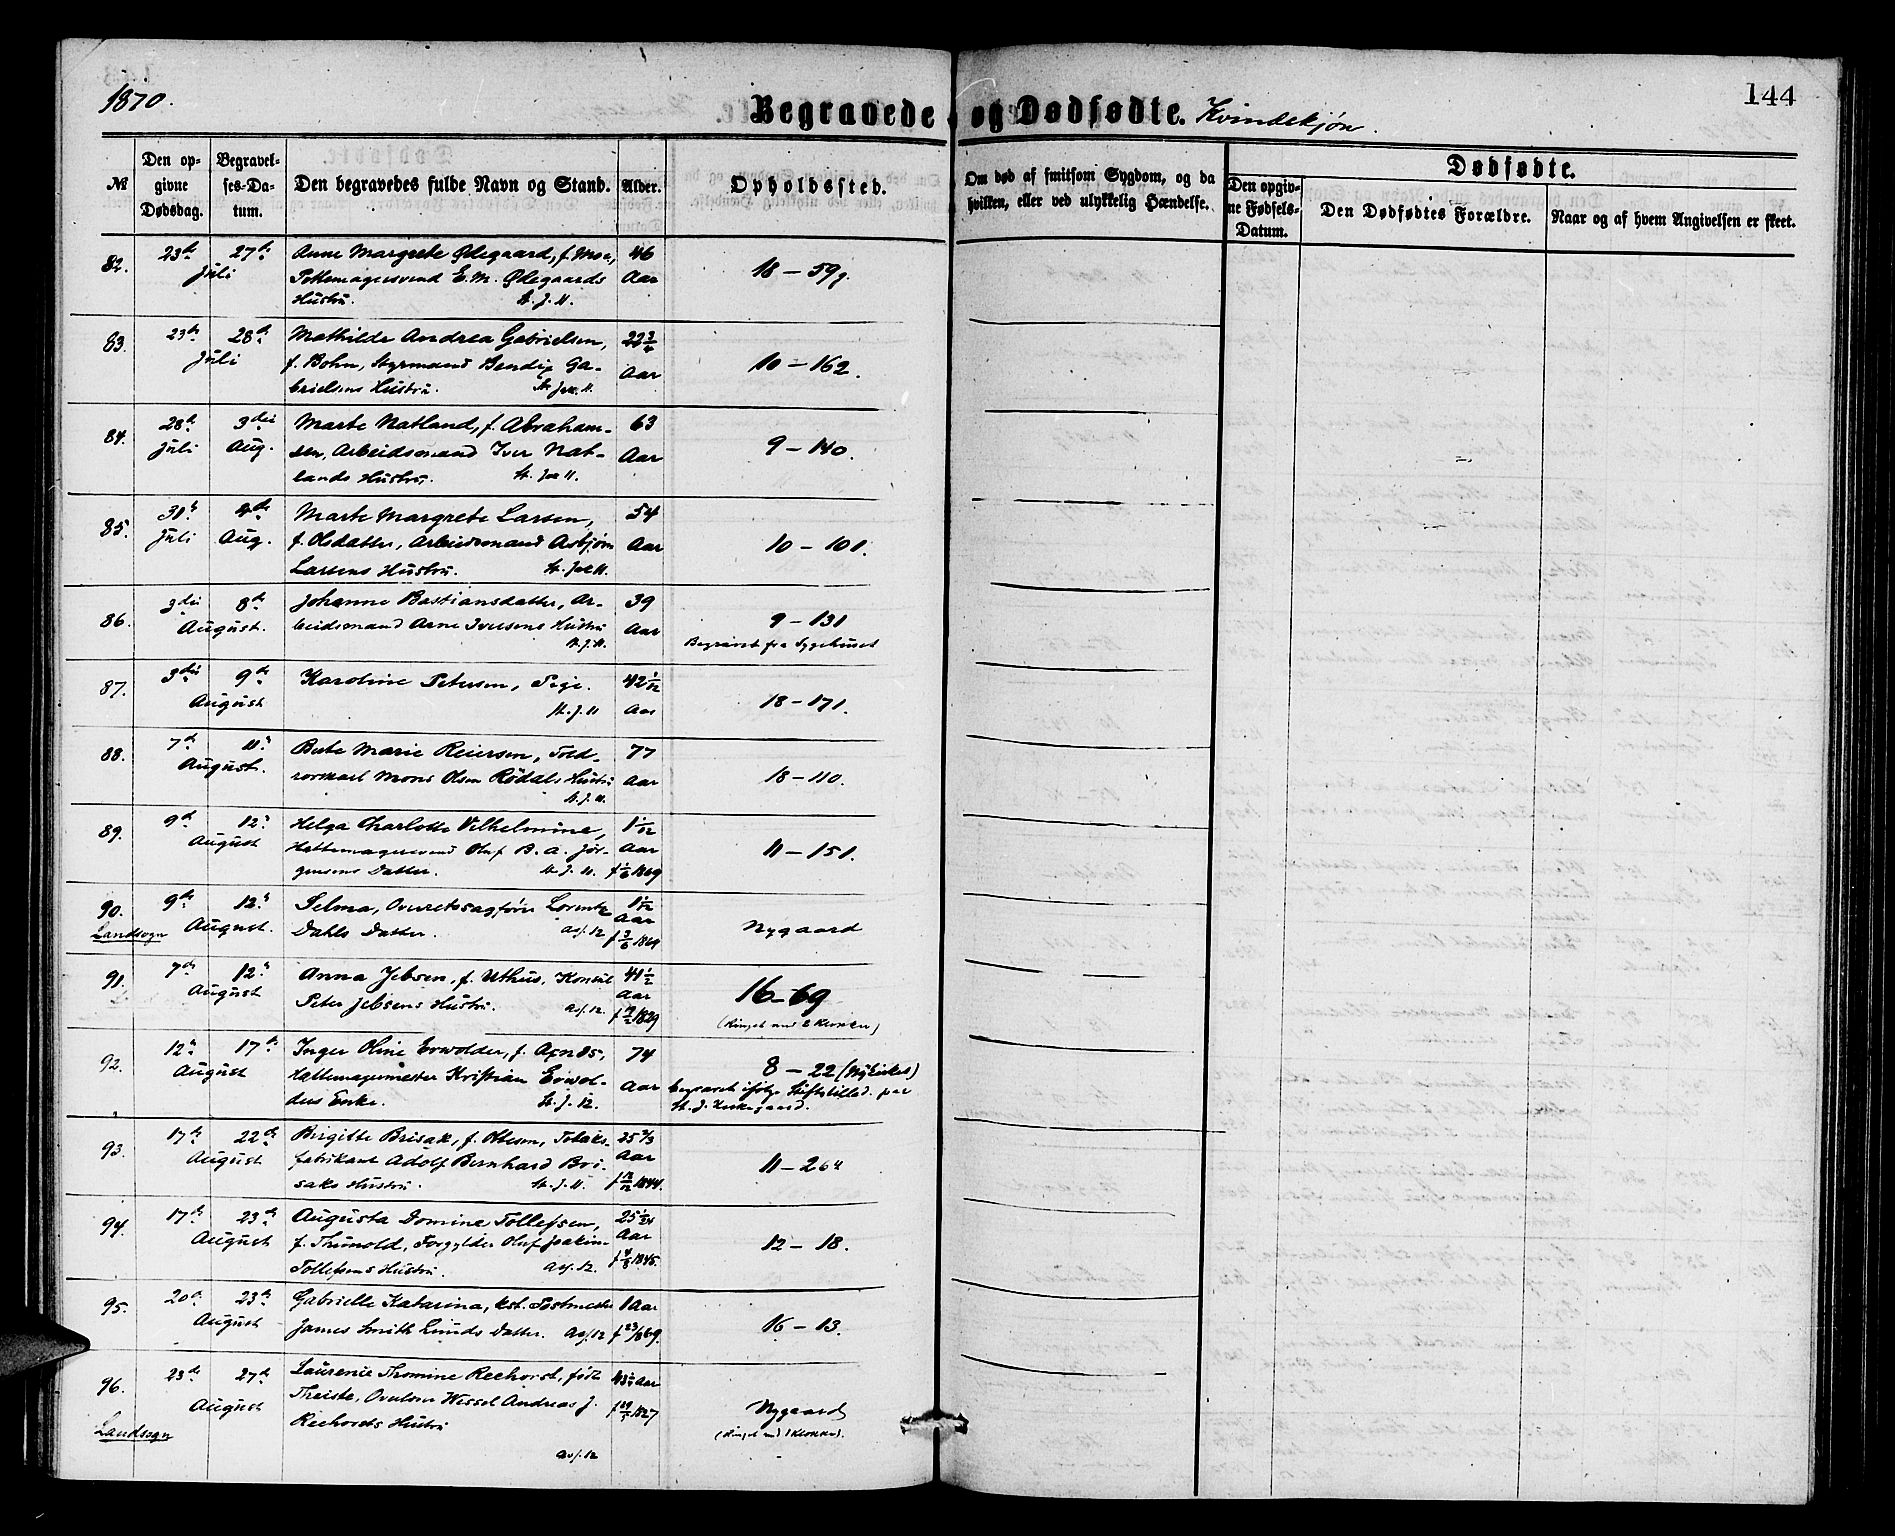 1870.
Begravede og Dødfødte. Kvindekjøn.
144
№
Den opgivne Dødsdag.
Begravelses-Datum.
Den begravedes fulde Navn og Stand.
Alder.
Opholdssted.
Om død af smitsom Sygdom, og da hvilken, eller ved ulykkelig Hændelse.
Dødfødte.
Den opgivne Fødsels-Datum.
Den Dødfødtes Forældre.
Naar og af hvem Angivelsen er skeet.
82. 23de 27de Juli
Anne Margrete Ødegaard, f. Moe,
Pottemagersvend E. M. Ødegaards
Hustru. St. J. 11.
46 Aar
18 – 59
83. 23de 28de Juli
Mathilde Andrea Gabrielsen,
f. Bohn, Styrmand Bendix Ga-
brielsens Hustru. St. Jac. 11.
22 3/4 Aar
10 – 162.
84. 28de Juli 3die Aug.
Marte Natland, f. Abraham-
sen, Arbeidsmand Iver Nat-
lands Hustru. St. Jac 11.
63 Aar
9 – 140.
85. 31te Juli 4de Aug.
Marte Margrete Larsen,
f. Olsdatter, Arbeidsmand Asbjørn
Larsens Hustru. St. Jac 11.
54 Aar
10 – 101.
86. 3die 8de August.
Johanne Bastiansdatter, Ar-
beidsmand Arne Iversens Hustru
St. J. 11.
39 Aar
9 – 131
Begravet fra Sygehuset
87. 3die 9de August
Karoline Petersen, Pige.
St. J. 11
42 1/12 Aar
18 – 171.
88. 7de 11te August.
Berte Marie Reiersen, Told-
rorskarl Mons Olsen Rödals Hustru
St. J. 11.
77 Aar
18 – 110.
89. 9de 12te August
Helga Charlotte Vilhelmine,
Hattemagersvend Oluf B. A. Jör-
gensens Datter. St. J. 11.
1 1/12 Aar
11 – 151.
90. 9de 12te August.
Landsogn
Selma, Overetssagfører Lorentz
Dahls Datter. Asf. 12
1 1/12 Aar
f 3/6 1869
Nygaard
91. 7de 12te August
Anna Jebsen, f. Uthus, Konsul
Peter Jebsens Hustru. Asf. 12.
41 1/2 Aar
16 – 69
(Ringet med 2 Klokker)
92. 12te 17de August
Inger Oline Erwolder, f.
Hattemagermester Kristian Erwol-
ders Enke. St. J. 12.
74 Aar
8 – 22 (Nykirken)
begravet ifølge Stiftstillad. paa
St. J. Kirkegaard.
93. 17de 22de August
Birgitte Brisak, f. Ottesen, Tobaks-
fabrikant Adolf Bernhard Bri-
saks Hustru. St. J. 11.
25 2/3 Aar
11 – 264
94. 17de 23de August
Augusta Domine Tollefsen,
f. Thunold, Forgylder Oluf Joakim
Tollefsens Hustru. Asf. 12.
25 1/24 Aar
12 – 18.
95. 20de 23de August
Gabrielle Katarina, kst. Postmester
James Smith Lunds Datter. Asf. 12
1 Aar
f 23/8 69.
16 – 13.
96. 23de 27de August
Landsogn
Laurence Thomine Reehorst, født
Theiste, Overlærer Wessel Andreas J.
Reehorsts Hustru
Asf. 12
Nygaard
(Ringet med 1 Klokke).